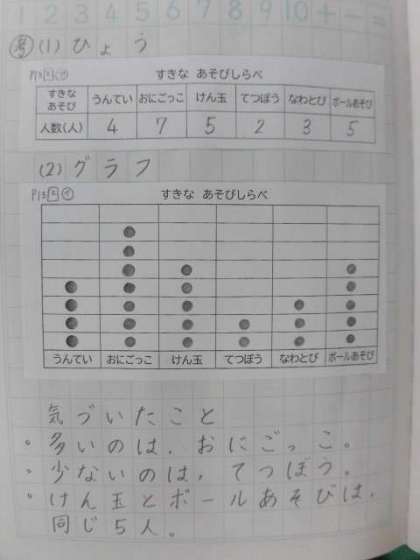 1 2 3 4 5 6 7 8 9 10 + - =
考 (1) ひょう
すきな あそびしらべ
すきなあそび うんてい おにごっこ けん玉 てつぼう なわとび ボールあそび
人数(人) 4 7 5 2 3 5
(2) グラフ
すきな あそびしらべ
うんてい おにごっこ けん玉 てつぼう なわとび ボールあそび
気づいたこと
・多いのは、おにごっこ。
・少ないのは、てつぼう。
・けん玉とボールあそびは、
同じ5人。